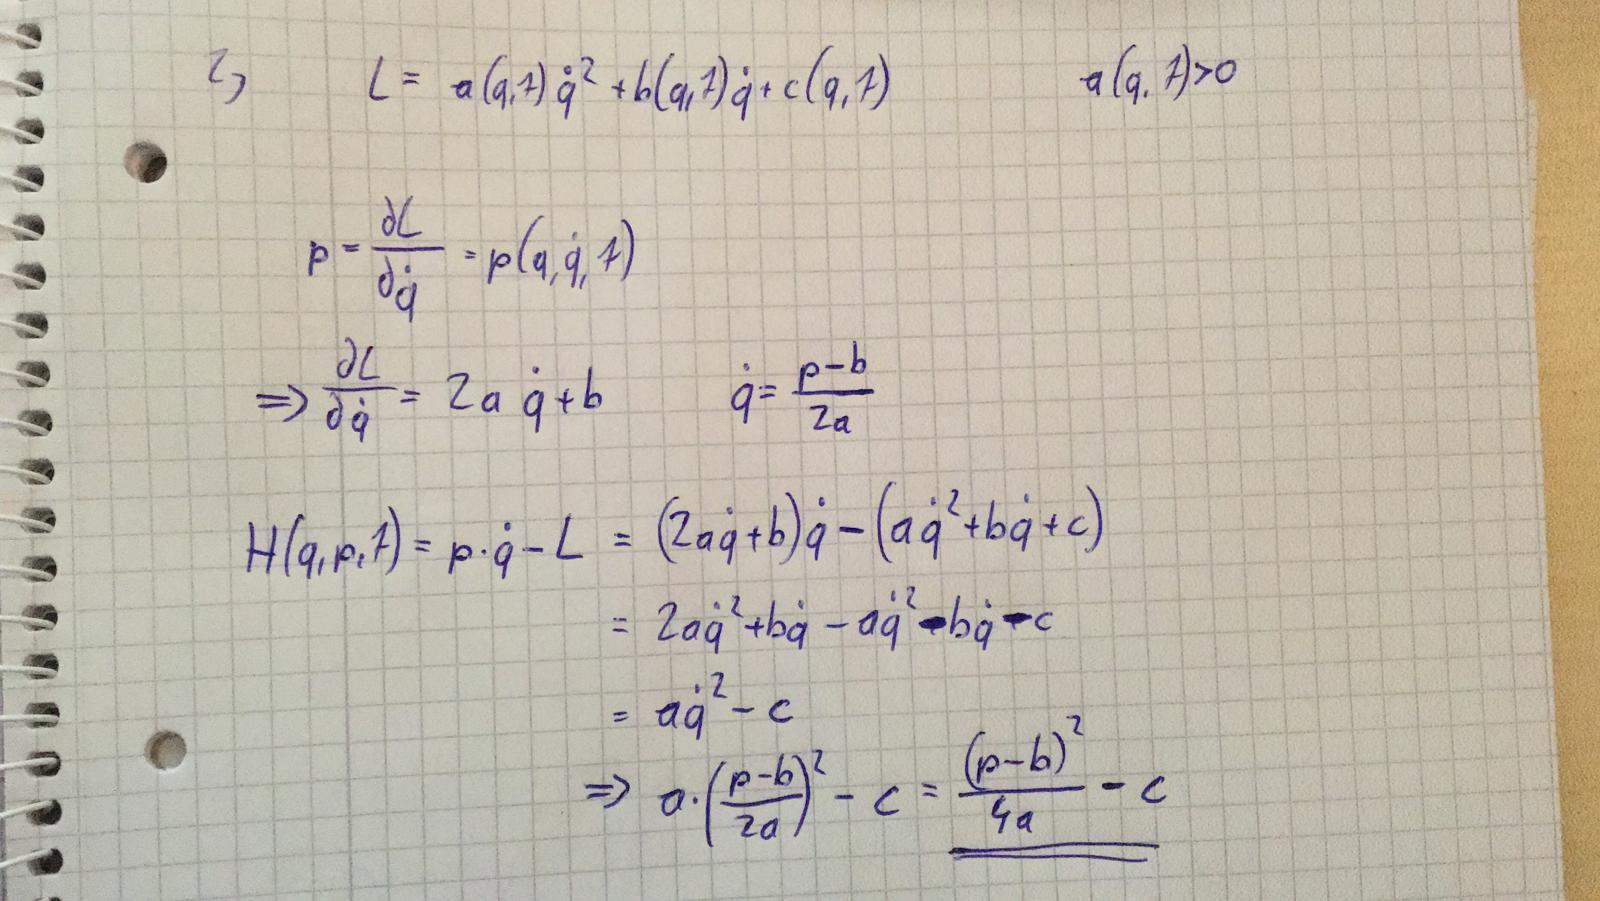 2) L = a(q,t) q̇² + b(q,t) q̇ + c(q,t) a(q,t)>0
p = ∂L/∂q̇ = p(q,q̇,t)
⇒ ∂L/∂q̇ = 2a q̇ + b q̇ = (p-b)/(2a)
H(q,p,t) = p·q̇ - L = (2aq̇+b)q̇ - (aq̇²+bq̇+c)
= 2aq̇² + bq̇ - aq̇² - bq̇ - c
= aq̇² - c
⇒ a·((p-b)/(2a))² - c = (p-b)²/(4a) - c